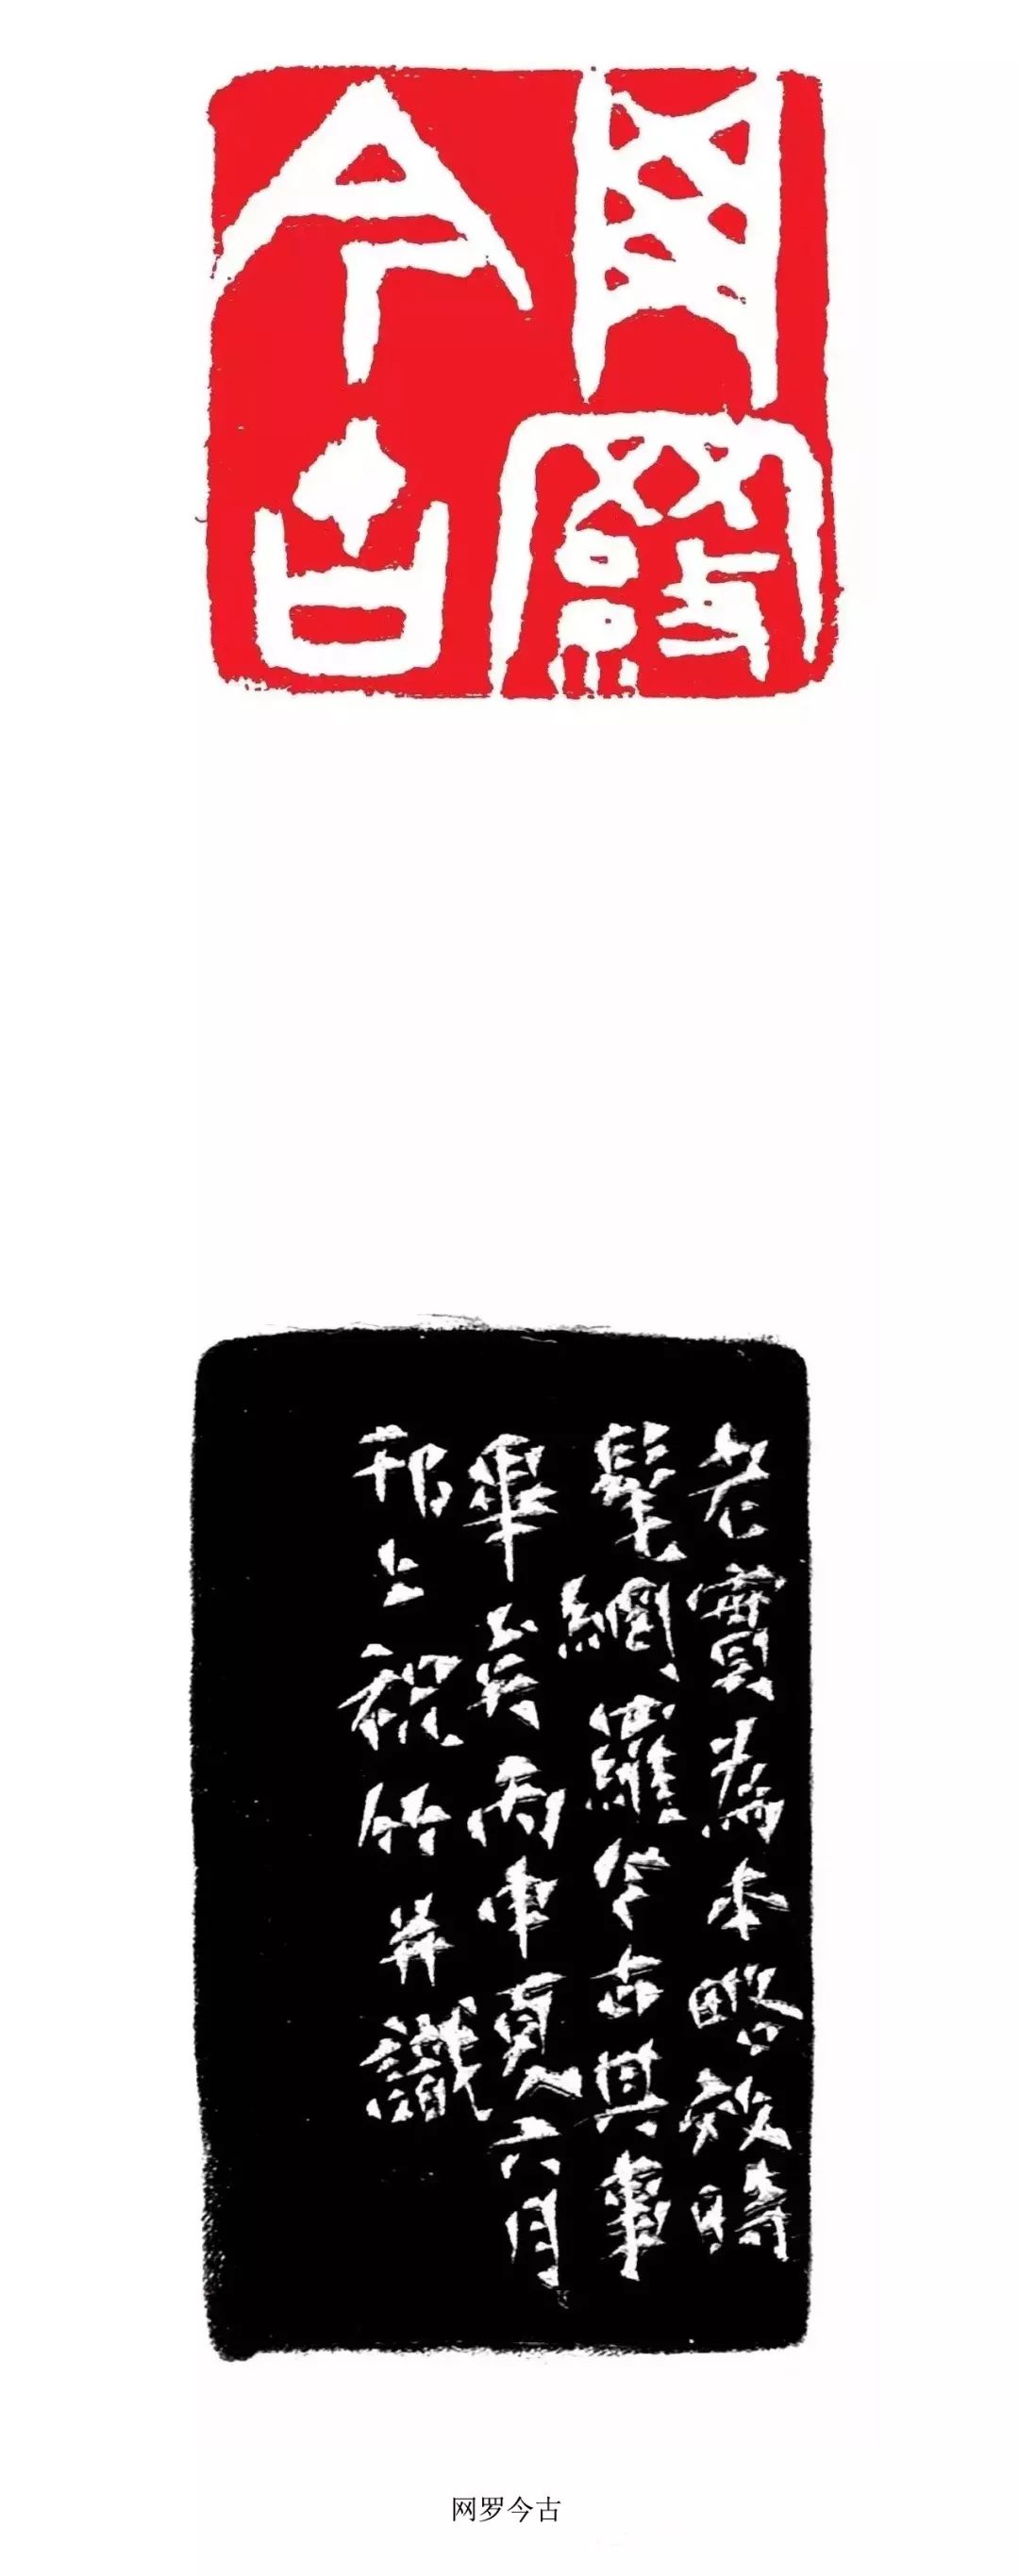 网罗今古
老實為本略效時
髦網羅今古其事
畢矣丙申夏六月
邗上祝竹并識
网罗今古